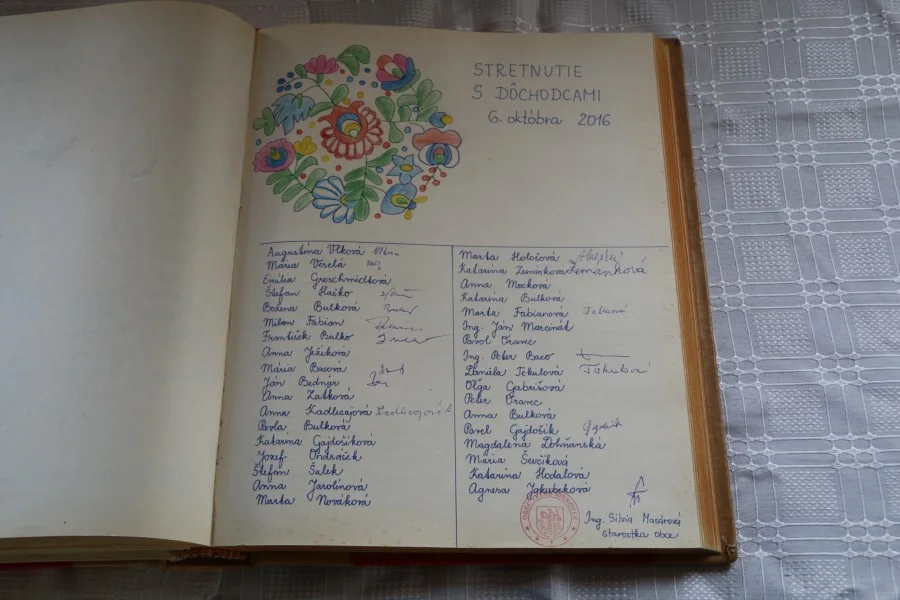 STRETNUTIE
S DÔCHODCAMI
6. októbra 2016
Augustína Vlková
Mária Veselá
Emília Groschmidtová
Štefan Haško
Božena Bulková
Milan Fabian
František Bulko
Anna Ježíková
Mária Bacová
Ján Bednár
Anna Zatková
Anna Kadlecajová
Pavla Bulková
Katarína Gajdošíková
Jozef Ondráček
Štefan Šulek
Anna Jarolínová
Marta Nováková
Marta Hološová
Katarína Zemanková Zemanková
Anna Mocková
Katarína Bulková
Marta Fabianová
Ing. Ján Marcinát
Pavol Oravec
Ing. Peter Baco
Daniela Tekulová
Oľga Gabrišová
Peter Oravec
Anna Bulková
Pavel Gajdošík
Magdaléna Dohňanská
Mária Ševčíková
Katarína Hodálová
Agnesa Jakubeková
Ing. Silvia Masárová
starostka obce